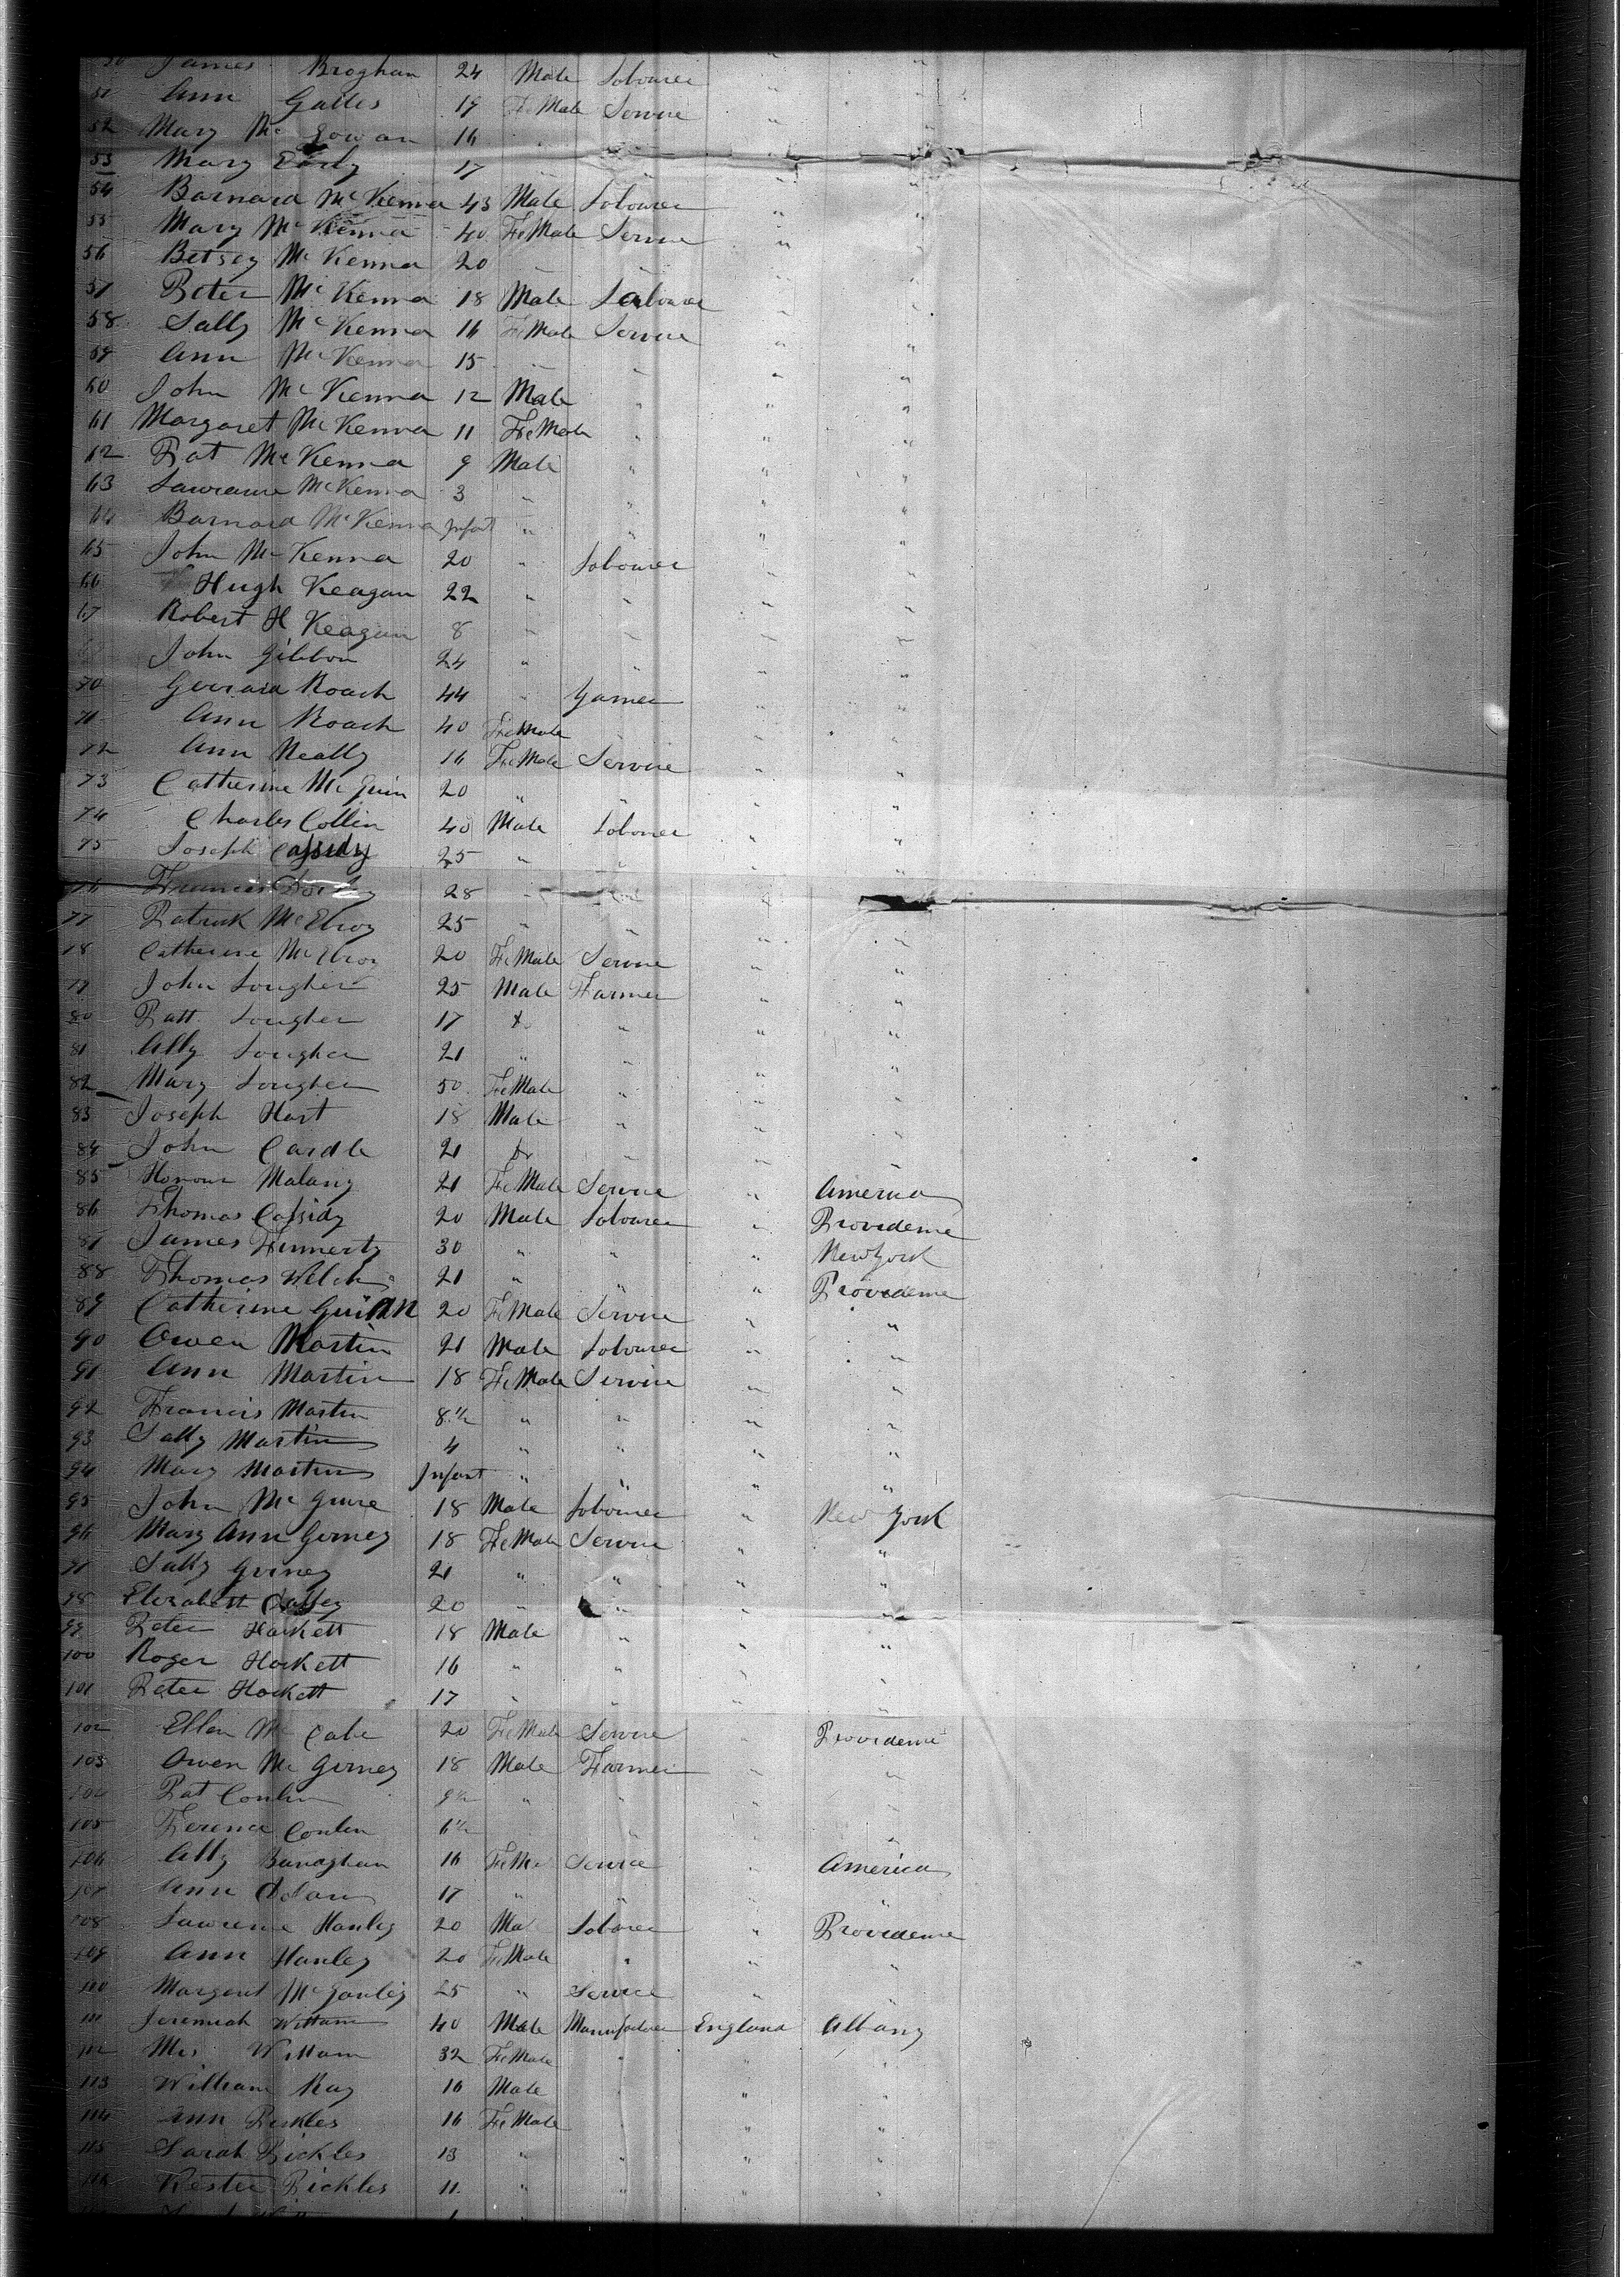 50 James Broghan 24 Male Labourer " "
51 Ann Galles 19 FeMale Service " "
52 Mary Mc Gowan 16 " " "
53 Mary Early 17 " " " "
54 Barnard McKenna 43 Male Labourer " "
55 Mary McKenna 40 FeMale Service " "
56 Betsey McKenna 20 " " " "
57 Peter McKenna 18 Male Labourer " "
58 Sally McKenna 16 FeMale Service " "
59 Ann McKenna 15 " " " "
60 John McKenna 12 Male " " "
61 Margaret McKenna 11 FeMale " " "
62 Pat McKenna 9 Male " " "
63 Lawrence McKenna 3 " " " "
64 Barnard McKenna Infant " " " "
65 John McKenna 20 " Labourer " "
66 Hugh Keagan 22 " " " "
67 Robert H Keagan 8 " " " "
John Gibbon 24 " " " "
70 Gerrard Roach 44 " Farmer " "
71 Ann Roach 40 FeMale
72 Ann Neally 16 FeMale Service " "
73 Catherine McGuin 20 " " " "
74 Charles Collin 40 Male Labourer " "
75 Joseph Cassidy 25 " " " "
76 Francis 28 "
77 Patrick McElroy 25 " " " "
78 Catherine McElroy 20 FeMale Service " "
79 John Lougher 25 Male Farmer " "
80 Patt Lougher 17 " " "
81 Ally Lougher 21 " " " "
82 Mary Lougher 50 FeMale " " "
83 Joseph Hart 18 Male " " "
84 John Cardle 21 " " "
85 Honour Malany 21 FeMale Service " America
86 Thomas Cassidy 20 Male Labourer " Providence
87 James Finnerty 30 " " " New York
88 Thomas Welch 21 " " " Providence
89 Catherine Guinn 20 FeMale Service " "
90 Owen Martin 21 Male Labourer " "
91 Ann Martin 18 FeMale Service " "
92 Francis Martin 8½ " " " "
93 Sally Martin 4 " " " "
94 Mary Martin Infant " " " "
95 John McGuire 18 Male Labourer " New York
96 Mary Ann Gurney 18 FeMale Service " "
97 Sally Gurney 21 " " " "
98 Elizabeth 20 " " " "
99 Peter Hackett 18 Male " " "
100 Roger Hackett 16 " " " "
101 Peter Hackett 17 " " " "
102 Ellen McCabe 20 FeMale Service " Providence
103 Owen McGurney 18 Male Farmer " "
104 Pat Conlin 9½ " " " "
105 Terence Conlin 6½ " " "
106 Ally Banaghan 16 FeMale Service " America
107 Ann 17 " " " "
108 Lawrence Hanley 20 Male Labourer " Providence
109 Ann Hanley 20 FeMale " " "
110 Margaret McGanley 25 " Service " "
111 Jeremiah Wittam 40 Male Manufacturer England Albany
112 Mrs Wittam 32 FeMale " " "
113 William Ray 16 Male " " "
114 Ann Pickles 16 FeMale " " "
115 Sarah Pickles 13 " " " "
116 Pickles 11 " " " "